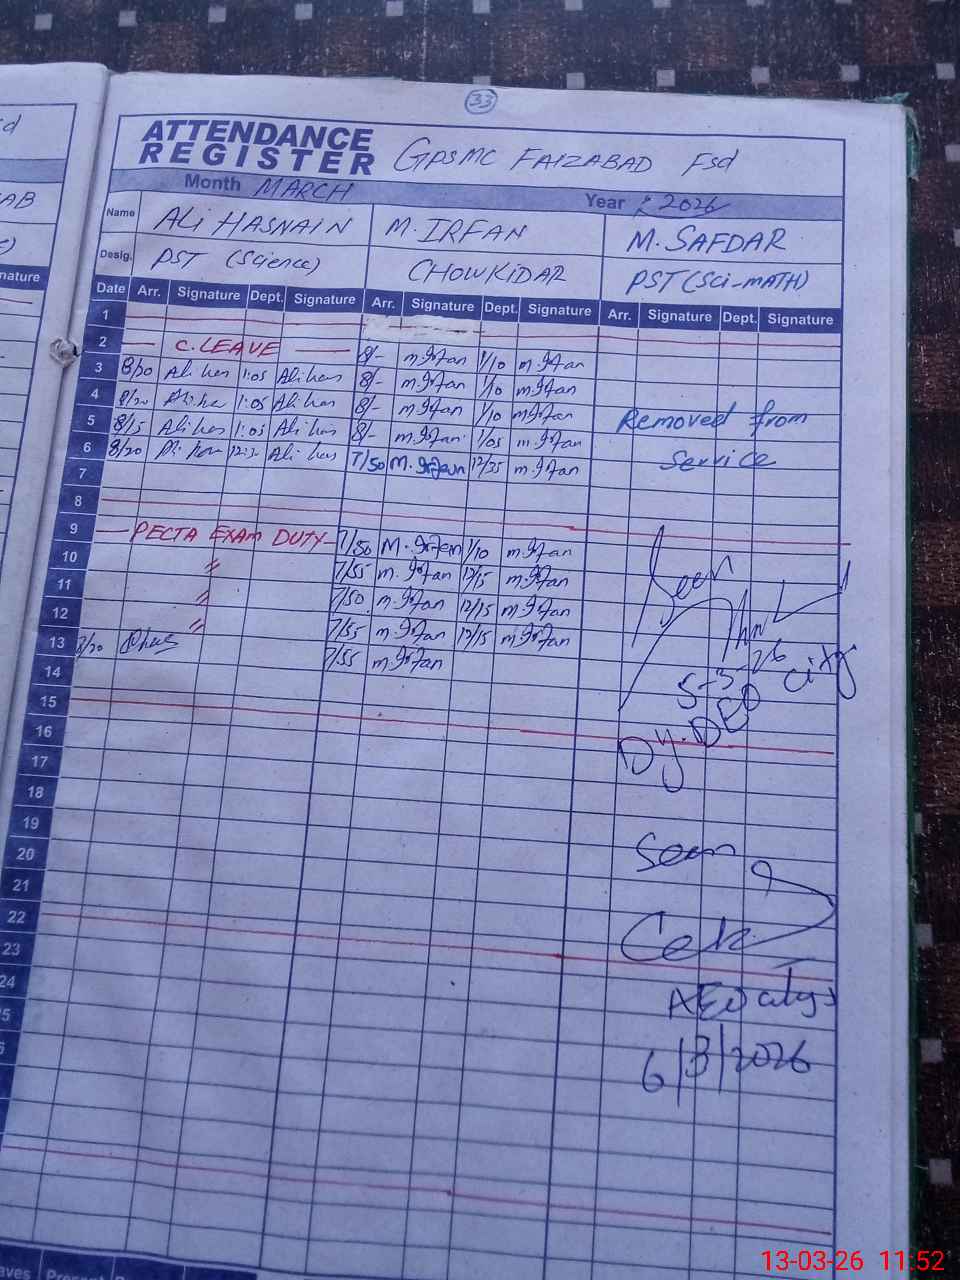 33
ATTENDANCE
REGISTER GPSMC FAIZABAD Fsd
Month MARCH Year : 2026
Name ALI HASNAIN M. IRFAN M. SAFDAR
Desig. PST (Science) CHOWKIDAR PST (SCI-MATH)
Date Arr. Signature Dept. Signature Arr. Signature Dept. Signature Arr. Signature Dept. Signature
1
2 C. LEAVE 8/- m. Irfan 1/10 m. Irfan
3 8/20 Ali has 1:05 Ali has 8/- m. Irfan 1/10 m. Irfan
4 8/20 Ali has 1:05 Ali has 8/- m. Irfan 1/10 m. Irfan
5 8/15 Ali has 1:05 Ali has 8/- m. Irfan 1/05 m. Irfan
6 8/20 Ali has Ali has 7/50 M. Irfan 12/35 m. Irfan
Removed from
Service
7
8
9 PECTA EXAM DUTY 7/50 M. Irfan 1/10 m. Irfan
10 〃 7/55 m. Irfan 12/15 m. Irfan
11 〃 7/50 m. Irfan 12/15 m. Irfan
12 〃 7/55 m. Irfan 12/15 m. Irfan
13 7/20 7/55 m. Irfan
14
Seen
5-3-26
DY. DEO city
15
16
17
18
19
20
21
22
23
24
Seen
AEO city
6/3/2026
aves Present
nature
13-03-26 11:52